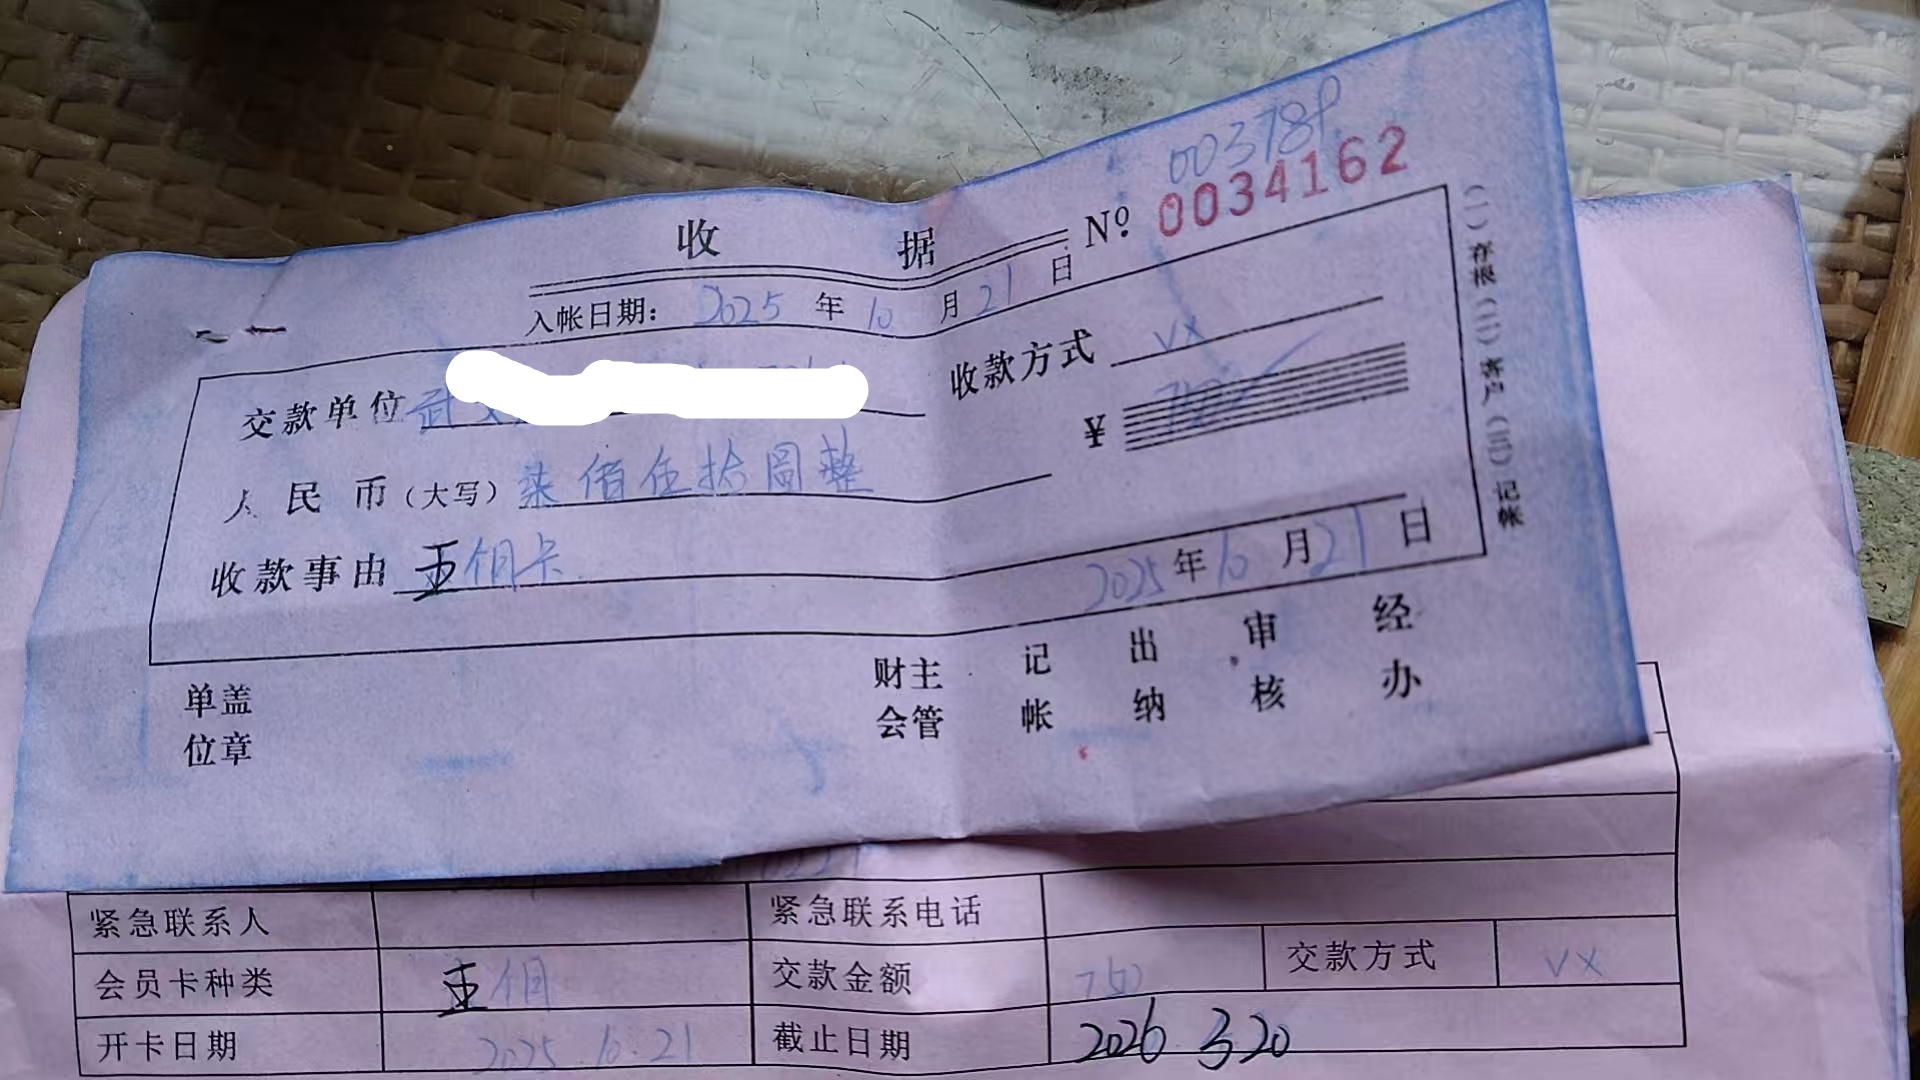 003789
收 据 № 0034162
入帐日期： 2025 年 10 月 21 日
交款单位 武 收款方式 VX
人民币（大写） 柒佰伍拾圆整 ¥ 750
收款事由 五個卡
2025 年 10 月 21 日
（一）存根（二）客户（三）记帐
单位盖章 财会主管 记帐 出纳 审核 经办
紧急联系人 紧急联系电话
会员卡种类 五個 交款金额 750 交款方式 VX
开卡日期 2025.10.21 截止日期 2026 3 20